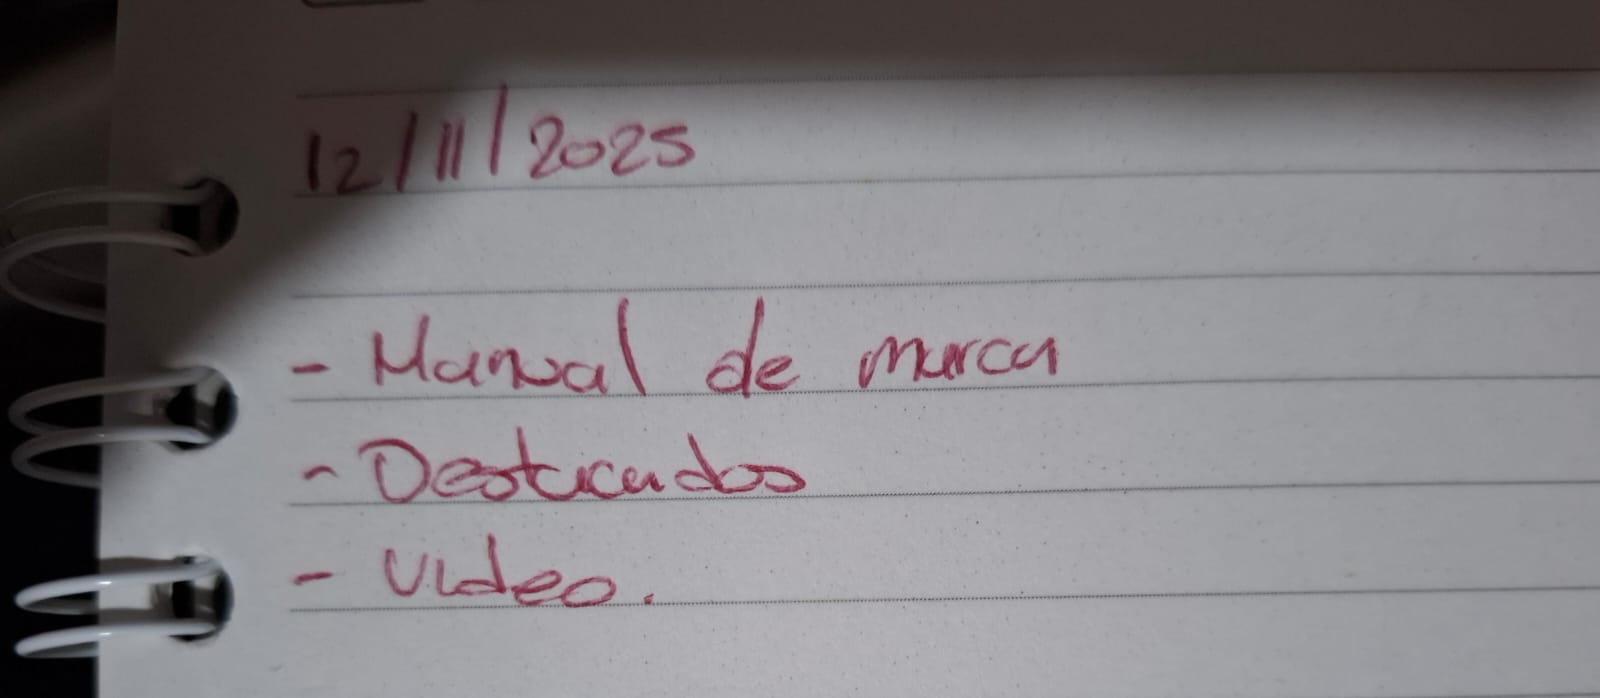 12/11/2025
- Manual de marca
- Destacados
- Video.